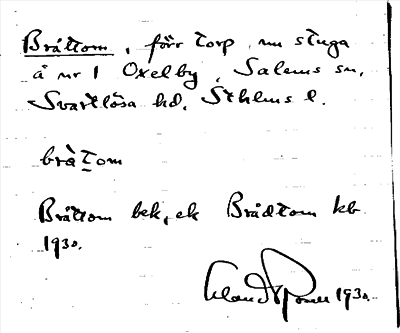 Bråttom, förr torp, nu stuga
å nr 1 Oxelby, Salems sn,
Svartlösa hd, Sthlms l.
bråtom
Bråttom bek, ek Brådtom kb
1930.
1930.